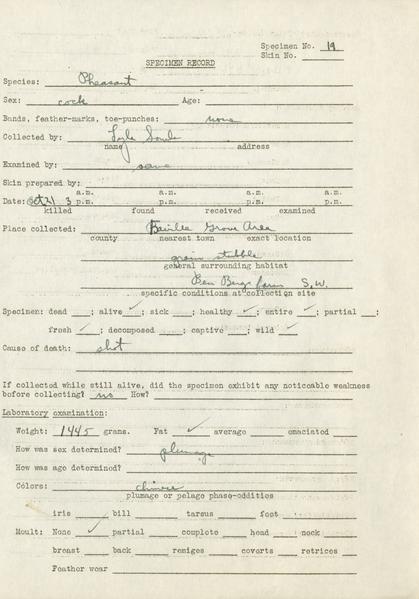 Specimen No. 19
Skin No.
SPECIMEN RECORD
Species: Pheasant
Sex: cock Age:
Bands, feather-marks, toe-punches: none
Collected by: Lyle Sowls
name address
Examined by: same
Skin prepared by:
a.m. a.m. a.m. a.m.
Date: Oct 21 3 p.m. p.m. p.m. p.m.
killed found received examined
Place collected: Faville Grove Area
county nearest town exact location
grain stubble
general surrounding habitat
Ben Berge farm S.W.
specific conditions at collection site
Specimen: dead ; alive ✓; sick ; healthy ✓; entire ✓; partial ;
fresh ✓; decomposed ; captive ; wild ✓
Cause of death: shot
If collected while still alive, did the specimen exhibit any noticable weakness
before collecting? no How?
Laboratory examination:
Weight: 1445 grams. Fat ✓ average emaciated
How was sex determined? plumage
How was age determined?
Colors: chinese
plumage or pelage phase-oddities
iris bill tarsus foot
Moult: None ✓ partial complete head neck
breast back remiges coverts retrices
Feather wear